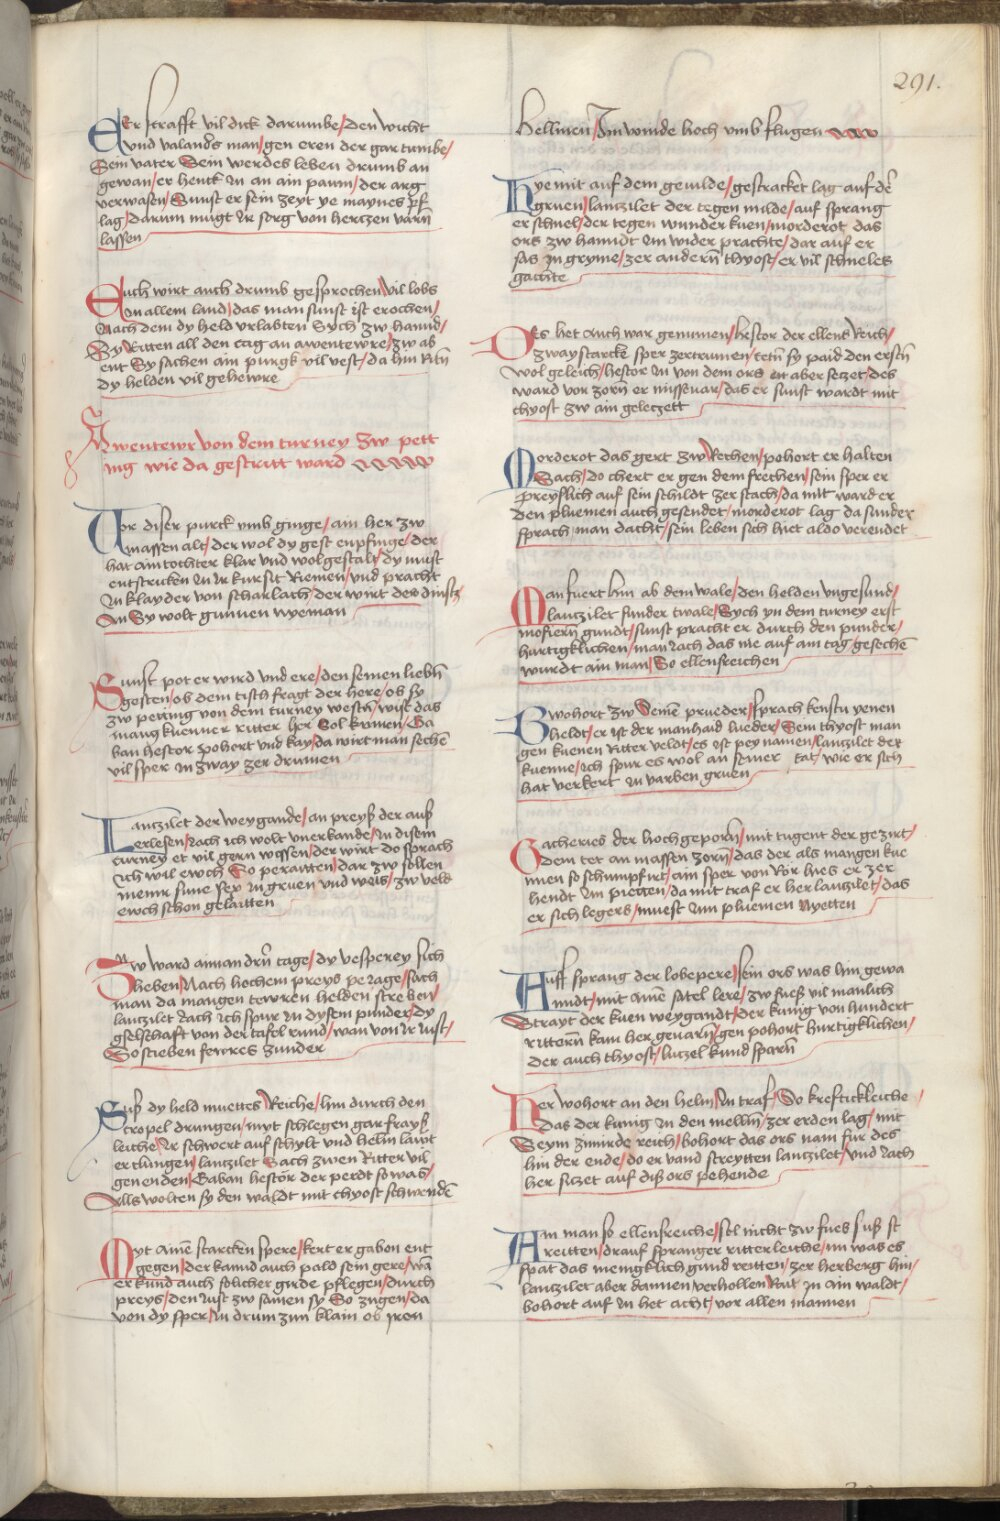 291.
Er strafft vil dick darumbe/den wicht
vnd valands man/gen eren der gar tumbe/
Sein vater Sein werdes leben drumb an
gewan/er henck in an ain paum/der arg
verwasen/Sunst er sein zeyt ye maynes pf
lag/darum mugt ir sorg von hertzen varn̄
lassen
Auch wirt auch drumb gesprochen/vil lobs
in allem land/das man sunst ist erochen/
Nach dem dy held vrlabten Sych zw hannd/
Sy Ritten all den tag an awentewre/zw ab
ent Sy sachen ain purgk vil vest/da hin Ritn̄
dy helden vil gehewre
Awentewr von dem turney zw pett
ing wie da gestritt ward
Vor diser purck vmb ginge/ain her zw
massen alt/der wol dy gest enpfinge/der
hat ain tochter klar vnd wolgestalt/dy must
entstricken in ir kursit Riemen/vnd pracht
in klayder von scharlach/der wirt des dinstz
An Sy wolt gunnen nyeman
Sunst pot er wird vnd ere/den seinen liebn̄
gesten/ob dem tisch fragt der here/ob sy
zw petting von dem turney westn̄/wist das
mang kuenner ritter her Sol kumen/Ga
ban hestor pohort vnd kay/da wirt man sechen̄
vil sper in zway zer drumen
Lantzilet der weygande/an preyß der auß
erlesen/nach ich wolt vnerkande/in disem
turney et vil gern wessen/der wirt do sprach
ich wil ewch So peraitten/dar zw sollen
meinr sune sex in gruen vnd weis/zw veld
ewch schon gelaitten
Nw ward am andrn̄ tage/dy vesperey sich
heben/Nach hochem preys peiage/sach
man da mangen tewren helden streben/
lantzilet nach ich spur in dysem punder/dy
gselschaft von der tafel rund/wan von ir iust/
So stieben fewres zunder
Suß dy held muettes Reiche/hin durch den
tropel drungen/myt schlegen gar frayß
leiche/ir schwert auf schylt vnd helm lawt
erclungen/lantzilet Stach zwen Ritter vil
genenden/Gaban hestor der perdt so was/
Alls wolten sy den waldt mit thyost schwenden̄
Myt ainē starcken spere/kert er gabon ent
gegen/der kamd auch pald sein gere/wā
er kund auch solicher girde pflegen/durch
preys/den iust zw samen sy So zugen/da
von dy sper/in drum zun klain ob iren
hellmen/Im winde hoch vmb flugen
Hye mit auf dem geuilde/gestracket lag auf dē
gruen/lantzilet der tegen milde/auf sprang
er schnel/der tegen wunder kuen/morderot das
ors zw hanndt im wider prachte/dar auf er
sas in gryme/zer andern̄ thyost/er vil schneles
gachte
Des het auch war genumen/hestor der ellens Reich/
zway starcke sper zertrumen/tetn̄ sy paid den erstn̄
wol geleich/hestor in von dem ors eit aber seczet/des
ward vor zorn̄ er missevar/das er sunst wardt mit
thyost zw aim geleczett
Morderot das gert zw Rechen/pohort er halten
Sach/do chert er gen dem frechen/sein sper er
preyslich auf sein schildt zer stach/da mit ward er
den pluemen auch gesendet/morderot lag da sunder
sprach/man dacht/sein leben sich hiet aldo verendet
Man fuert hin ab dem wale/den helden vngesund/
lantzilet sunder twale/Sych yn dem turney erst
mosieren̄ gundt/sunst pracht er durch den punder/
hurtigklichen/man nach das nie auf aim tag gesechen̄
wurdt ain man/So ellensreichen
Bwohort zw Seinē prueder/sprach kenstu yenen
heldt/er ist der manhaid lueder/Sein thyost man
gen kuenen Ritter veldt/es ist pey namen/lantzilet der
kuenne/ich spur es wol an seiner tat/wie er sich
hat verkert in varben gruen
Gacheries der hochgeporn̄/mit tugent der gezirt/
dem tet an massen zorn̄/das der als mangen kue
nnen so schumpfirt/ain sper von Ror hies er zer
hendt im pietten/da mit traf er her lantzilet/das
er sich legers/muest im pluemen nyetten
Auff sprang der lobepere/sein ors was hin gewa
nndt/mit ainē satel lere/zw fueß vil manlich
Strayt der kuen weygandt/der kunig von hundert
rittern̄ kam her gevarn̄/gen pohort hurtigklichen/
der auch thyost/luczel kund sparn̄
Der wohort an den helm/in traf/So kreftickleiche
Das der kunig in den mellm̄/zer erden lag/mit
Seym zimirde reich/bohort das ors nam fur des
hin der ende/do er vand streytten lantzilet/vnd nach
her seczet auf diß ors pehende
Ain man so ellensreiche/sol nicht zw fues suß st
reitten/drauf spranger ritterleiche/nu was es
spat das menigklich gund reitten/zer herberg hin/
lantzilet aber dannen verhollen/Rait in ain waldt/
bohort auf in het acht/vor allen mannen